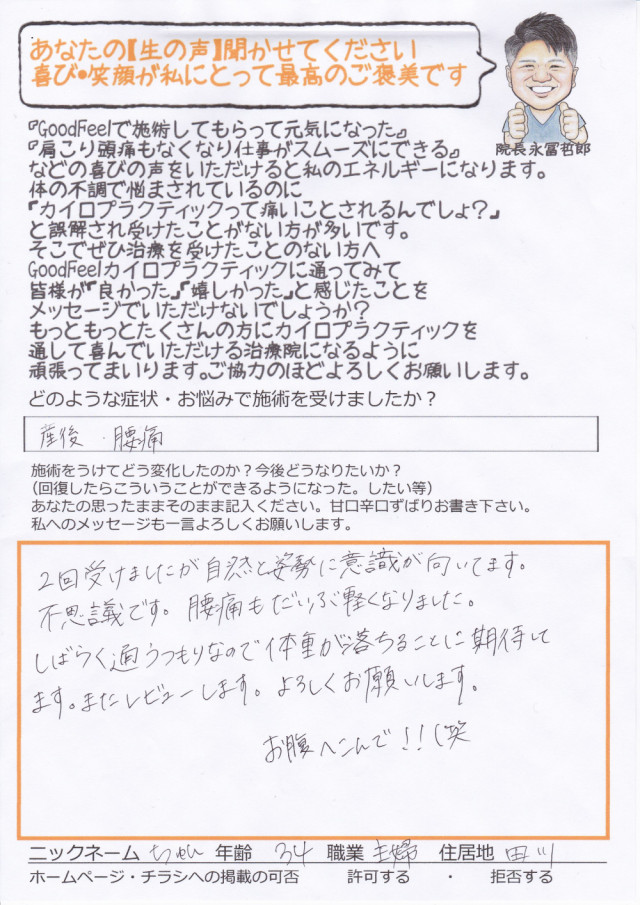 あなたの【生の声】聞かせてください
喜び•笑顔が私にとって最高のご褒美です
院長 永冨哲郎
『GoodFeelで施術してもらって元気になった』
『肩こり頭痛もなくなり仕事がスムーズにできる』
などの喜びの声をいただけると私のエネルギーになります。
体の不調で悩まされているのに
『カイロプラクティックって痛いことされるんでしょ？』
と誤解され受けたことがない方が多いです。
そこでぜひ治療を受けたことのない方へ
GoodFeelカイロプラクティックに通ってみて
皆様が『良かった』『嬉しかった』と感じたことを
メッセージでいただけないでしょうか？
もっともっとたくさんの方にカイロプラクティックを
通して喜んでいただける治療院になるように
頑張ってまいります。ご協力のほどよろしくお願いします。
どのような症状・お悩みで施術を受けましたか？
産後・腰痛
施術をうけてどう変化したのか？今後どうなりたいか？
（回復したらこういうことができるようになった。したい等）
あなたの思ったままそのまま記入ください。甘口辛口ずばりお書き下さい。
私へのメッセージも一言よろしくお願いします。
2回受けましたが自然と姿勢に意識が向いてます。
不思議です。腰痛もだいぶ軽くなりました。
しばらく通うつもりなので体重が落ちることに期待して
ます。またレビューします。よろしくお願いします。
お腹へこんで!!(笑
ニックネーム 年齢 34 職業 主婦 住居地 田川
ホームページ・チラシへの掲載の可否 許可する ・ 拒否する